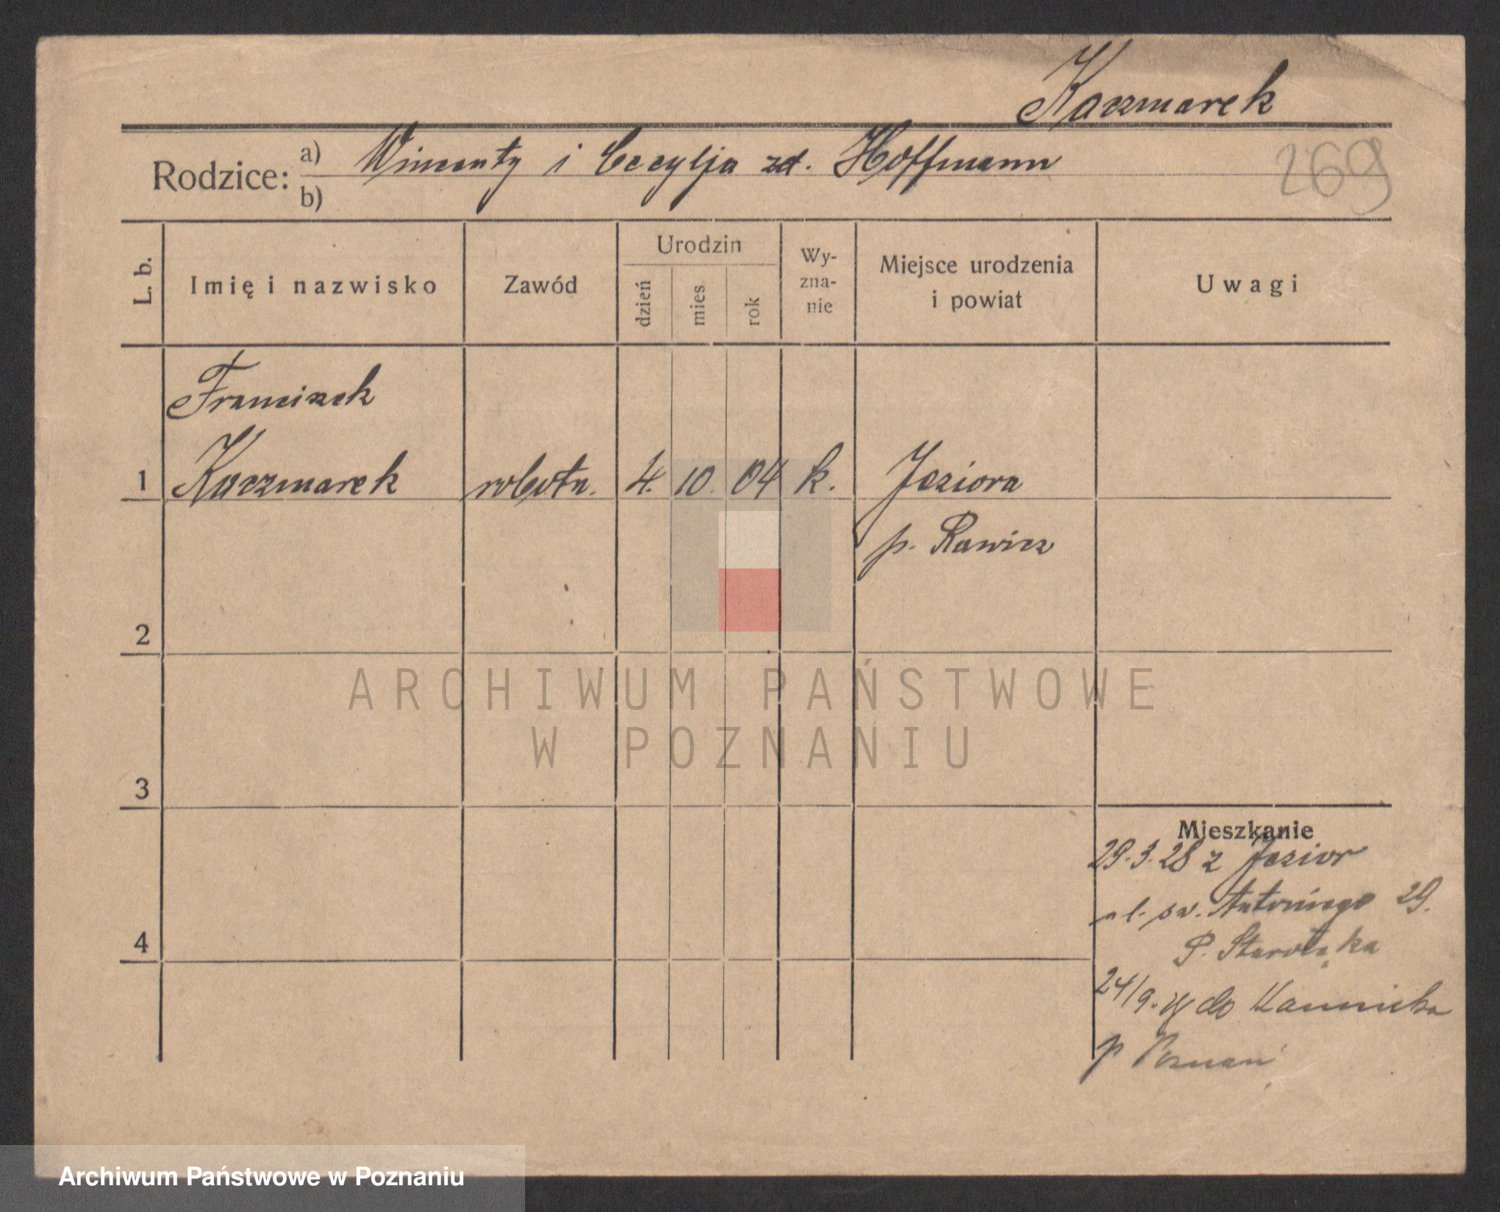 Kaczmarek
Rodzice: a) Wincenty i Cecylja zd. Hoffmann
b)
269
L. b.
Imię i nazwisko
Zawód
Urodzin
dzień
mies
rok
Wy-
zna-
nie
Miejsce urodzenia
i powiat
Uwagi
Franciszek
1 Kaczmarek robotn. 4. 10. 04 k. Jeziora
p. Rawicz
2
3
4
Mieszkanie
29.3.28 z Jezior
ul. św. Antoniego 29.
P. Starołęka
24/9. do
p Poznań
ARCHIWUM PAŃSTWOWE
W POZNANIU
Archiwum Państwowe w Poznaniu